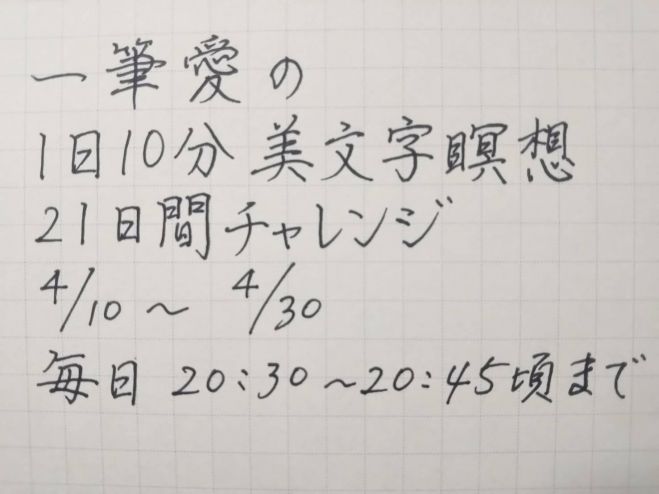 一筆愛の
1日10分 美文字瞑想
21日間チャレンジ
4/10 〜 4/30
毎日 20:30〜20:45頃まで